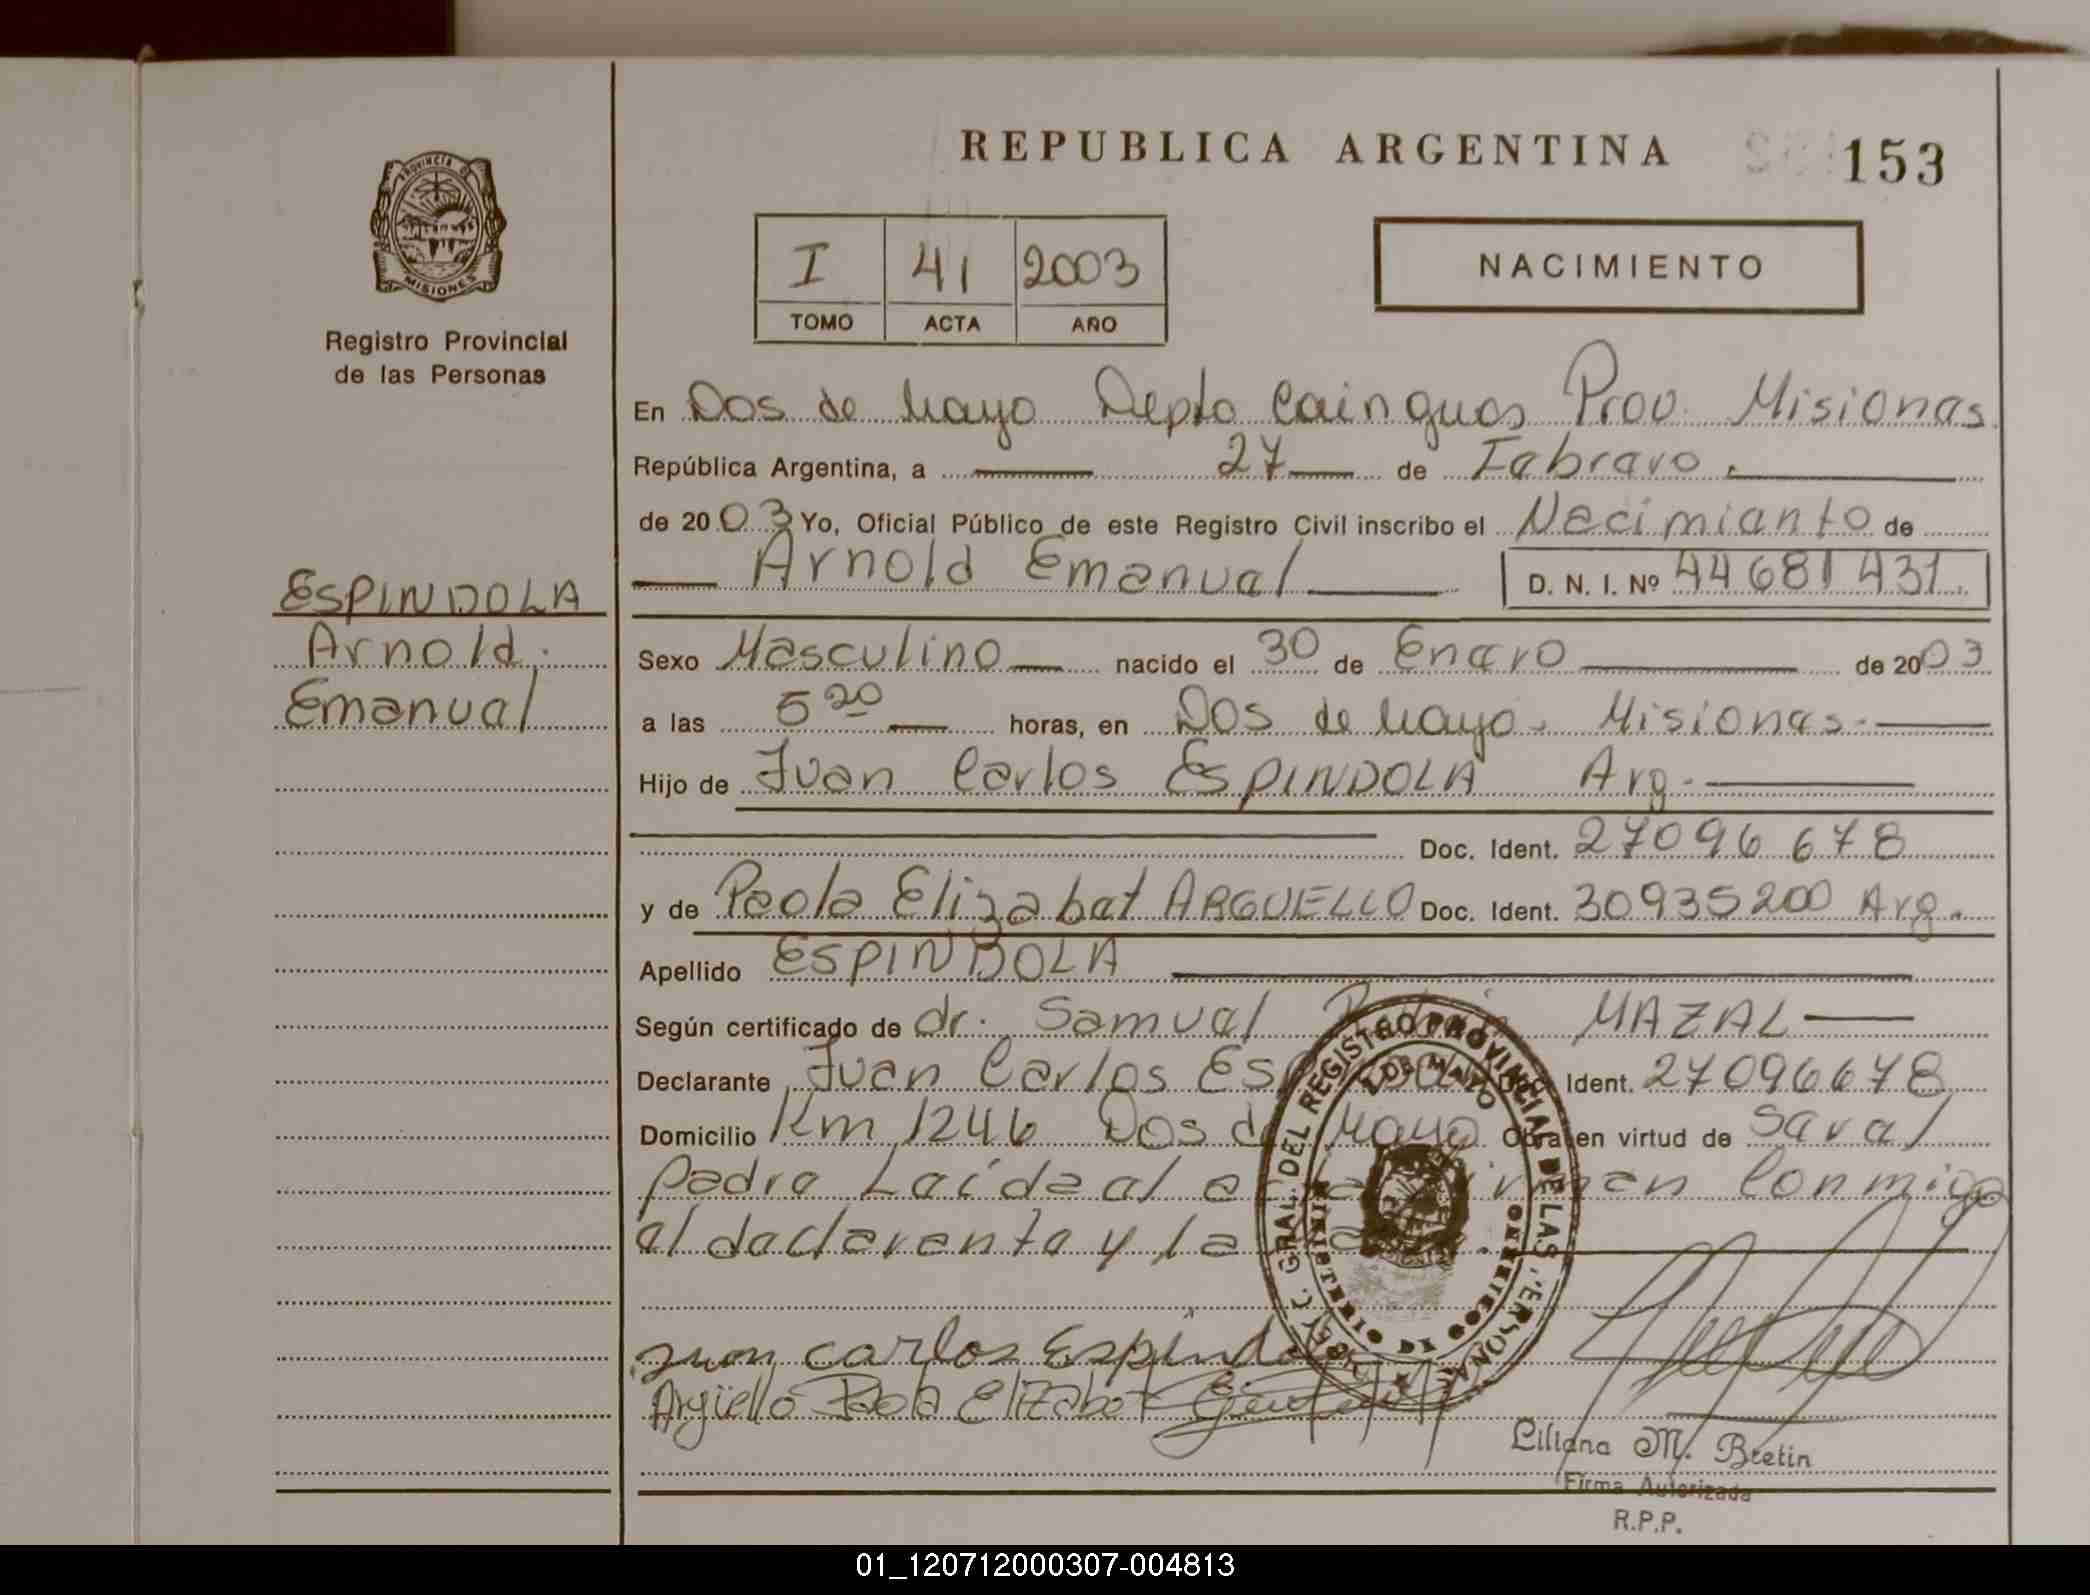 REPUBLICA ARGENTINA 153
PROVINCIA DE
MISIONES
Registro Provincial
de las Personas
I 41 2003
TOMO ACTA AÑO
NACIMIENTO
En Dos de Mayo Depto Cainguas Prov. Misiones
República Argentina, a 27 de Febrero.
de 2003 Yo, Oficial Público de este Registro Civil inscribo el Nacimiento de
Arnold Emanuel D. N. I. Nº 44681431.
ESPINDOLA
Arnold.
Emanuel
Sexo Masculino nacido el 30 de Enero de 2003
a las 5 20 horas, en Dos de Mayo. Misiones.
Hijo de Juan Carlos ESPINDOLA Arg.
Doc. Ident. 27096678
y de Paola Elizabet ARGUELLO Doc. Ident. 30935200 Arg.
Apellido ESPINDOLA
Según certificado de dr. Samuel MAZAL
Declarante Juan Carlos Doc. Ident. 27096678
Domicilio Km 1246 Dos de Mayo Obra en virtud de ser el
padre Leída el conmigo
al declarante y la
juan carlos Espindola
Argüello Paola Elizabet
DEL REGISTRO PROVINCIAL DE LAS PERSONAS
2 DE MAYO
Liliana M. Bretin
Firma Autorizada
R.P.P.
01_120712000307-004813